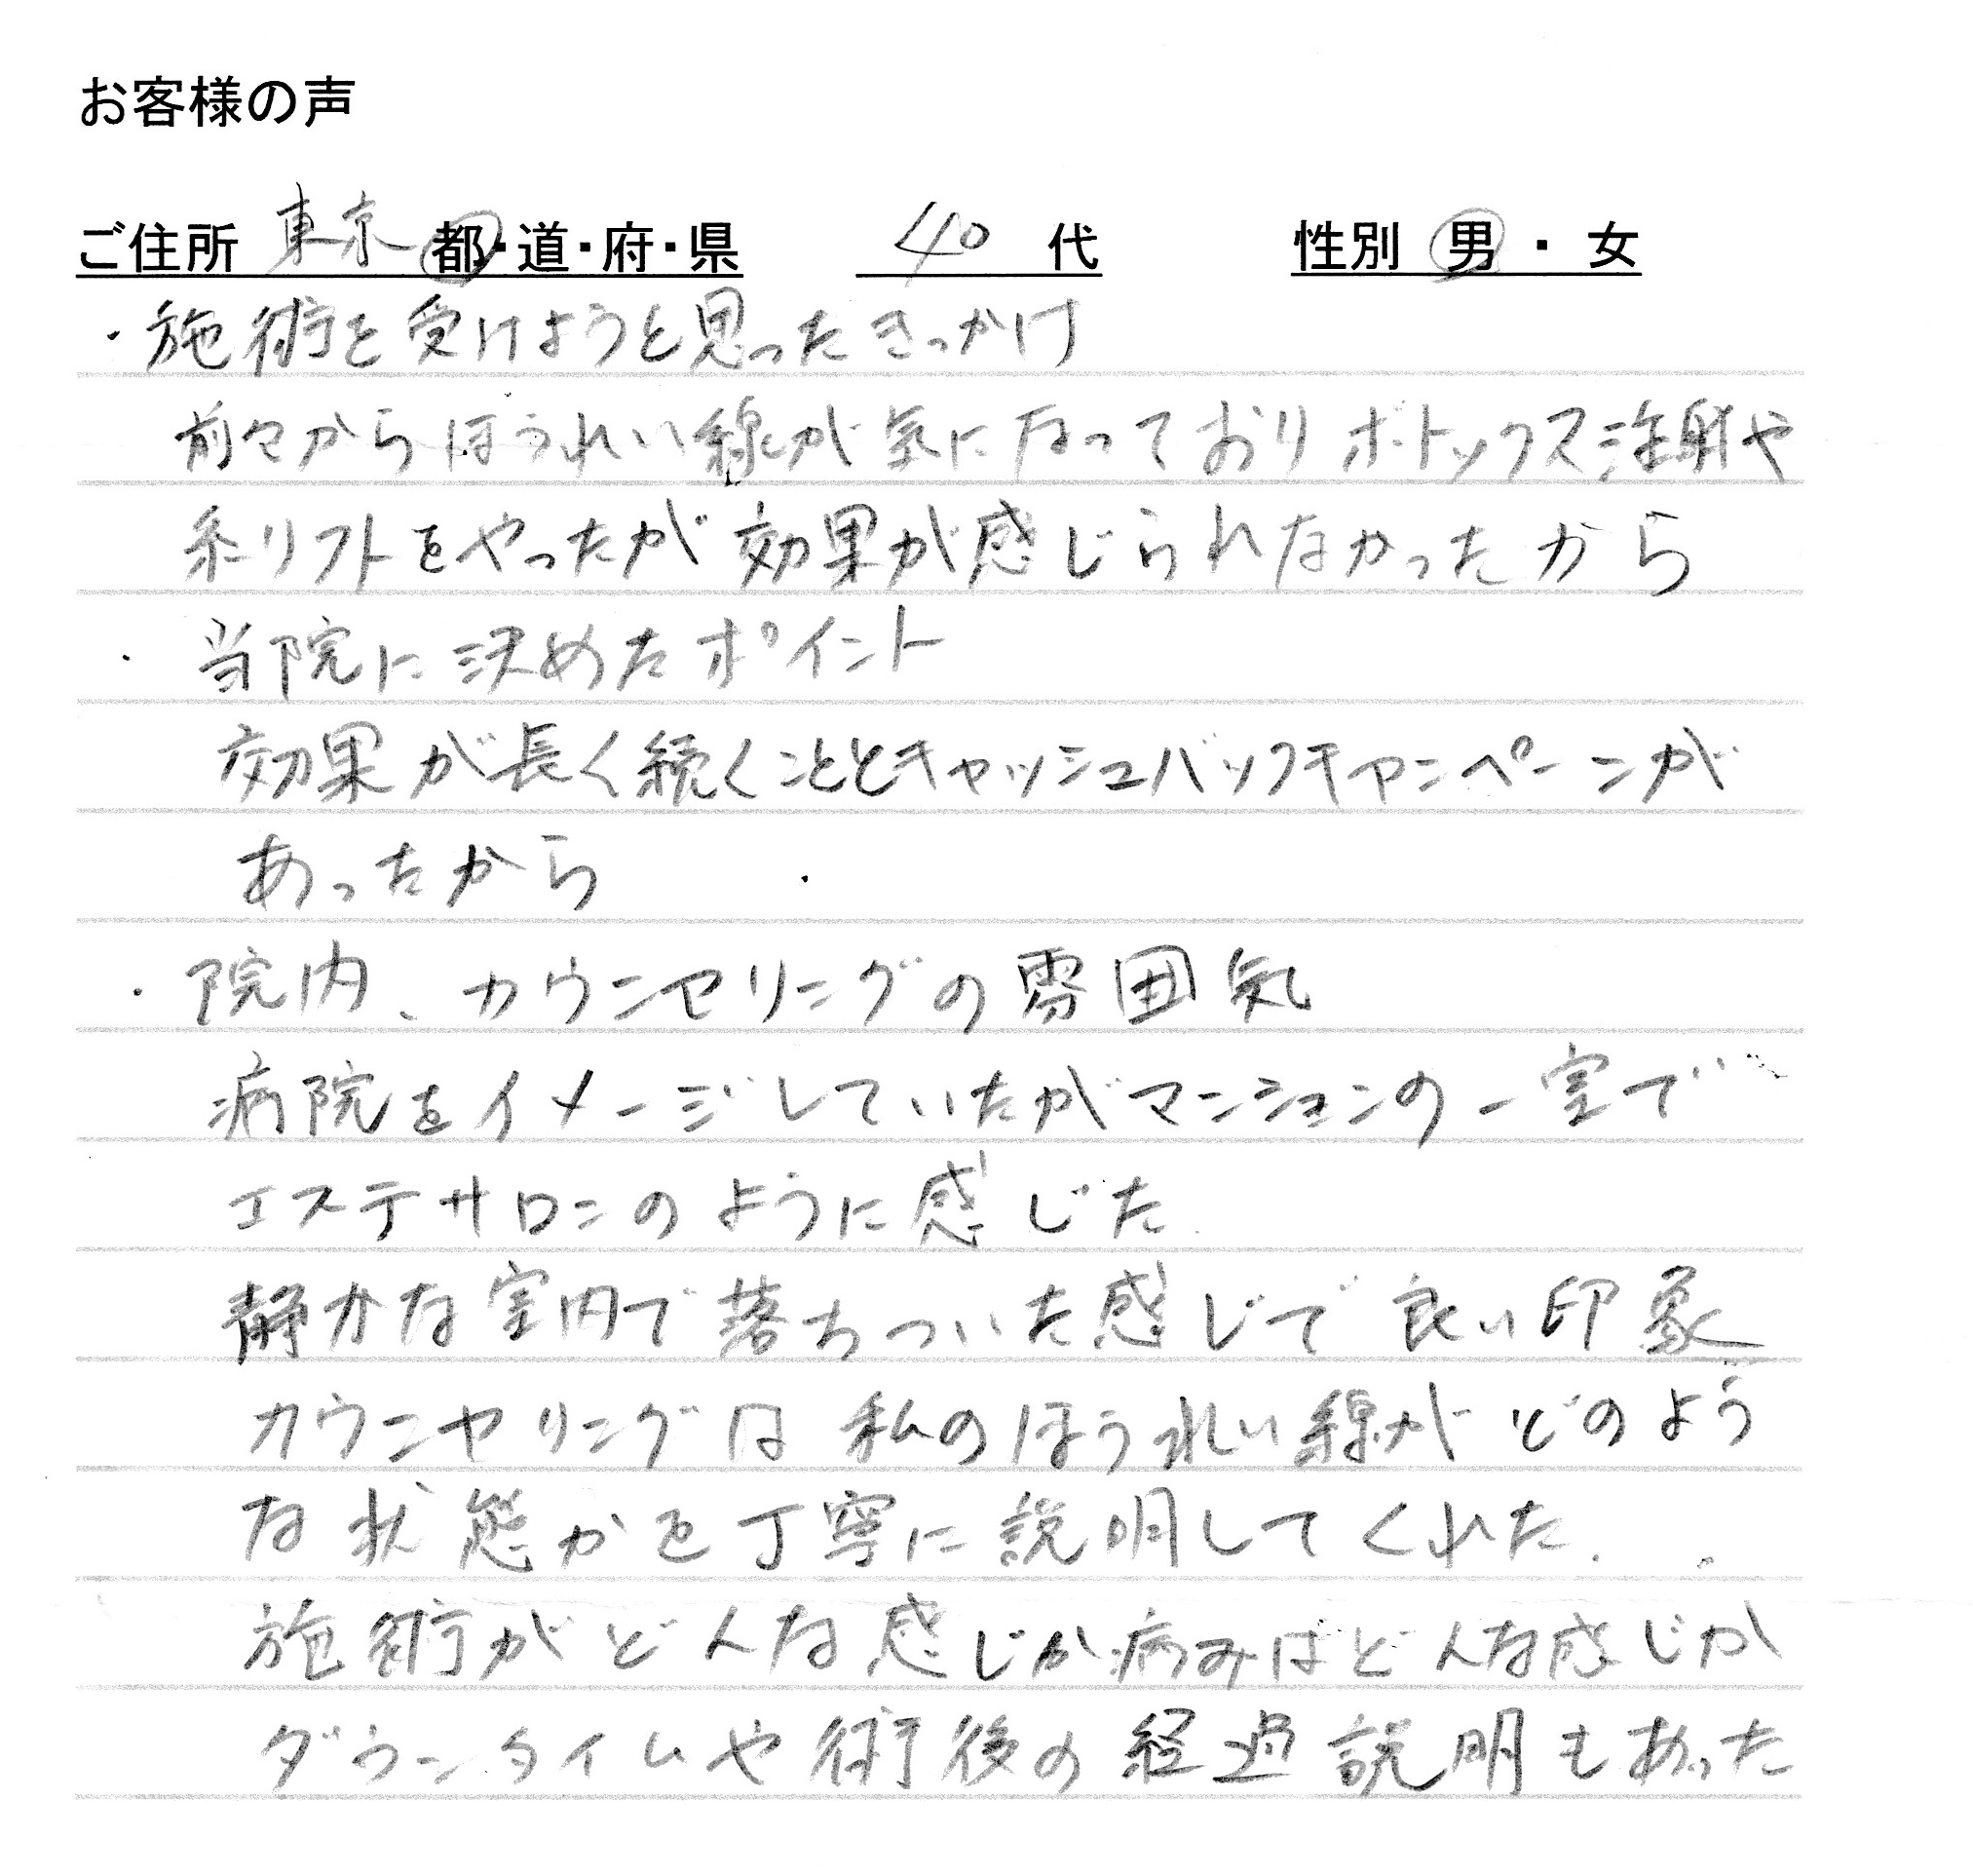 お客様の声
ご住所 東京 都・道・府・県 40 代 性別 男・女
・施術を受けようと思ったきっかけ
前々からほうれい線が気になっておりボトックス注射や
糸リフトをやったが効果が感じられなかったから
・当院に決めたポイント
効果が長く続くこととキャッシュバックキャンペーンが
あったから
・院内、カウンセリングの雰囲気
病院をイメージしていたがマンションの一室で
エステサロンのように感じた.
静かな室内で落ちついた感じで良い印象
カウンセリングは私のほうれい線がどのよう
な状態かを丁寧に説明してくれた.
施術がどんな感じか痛みはどんな感じか
ダウンタイムや術後の経過説明もあった